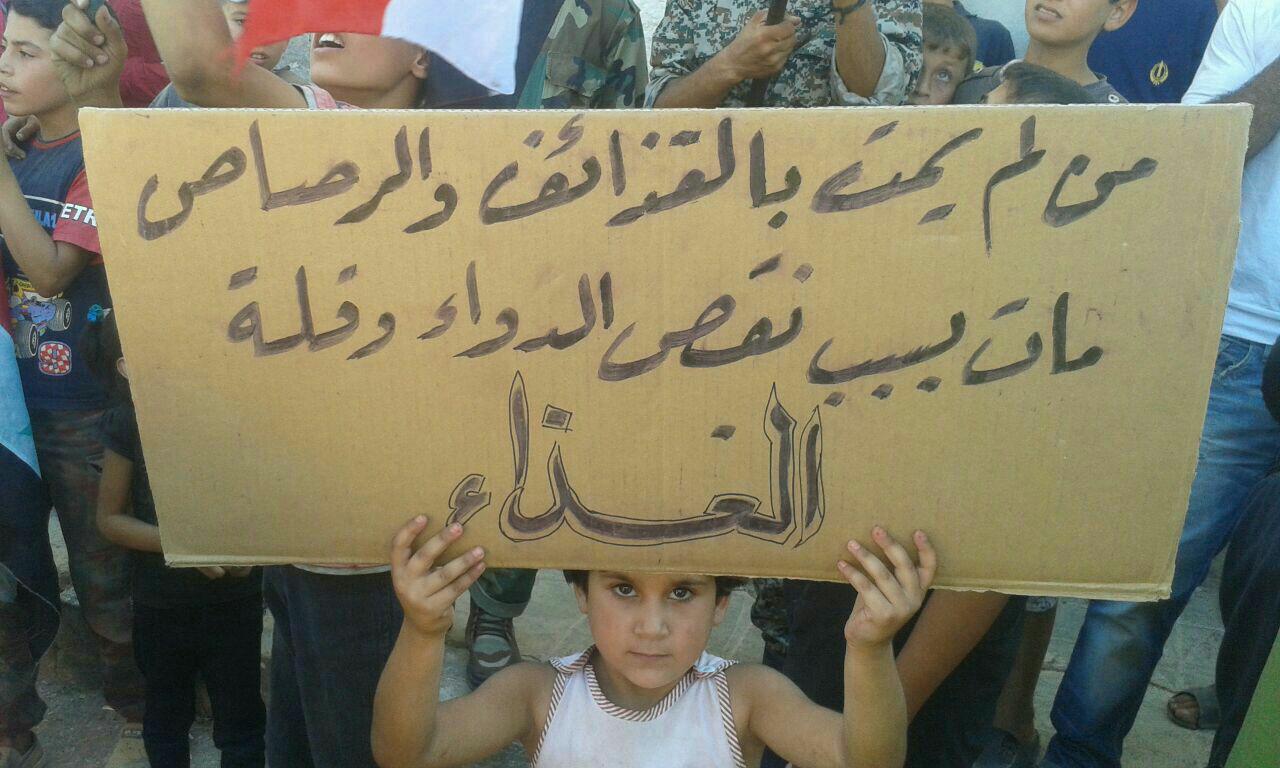 من لم يمت بالقذائف والرصاص
مات بسبب نقص الدواء وقلة
الغذاء
ETR